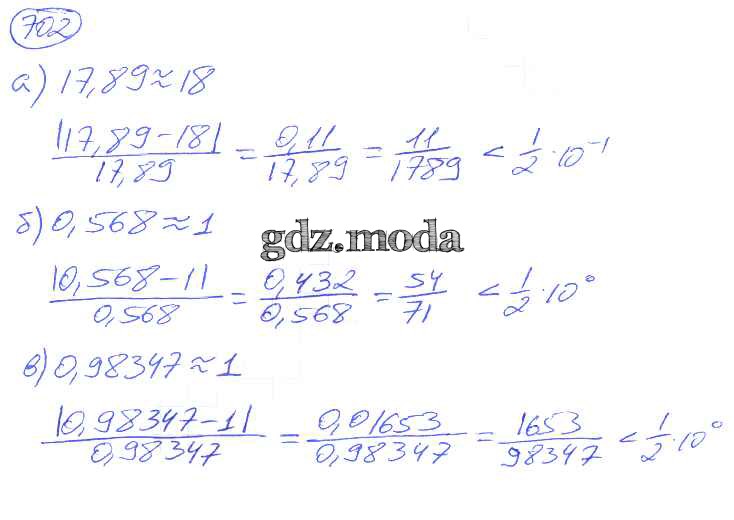 702
а) 17,89≈18
|17,89-18|/17,89 = 0,11/17,89 = 11/1789 < 1/2 · 10⁻¹
б) 0,568≈1
gdz.moda
|0,568-1|/0,568 = 0,432/0,568 = 54/71 < 1/2 · 10⁰
в) 0,98347≈1
|0,98347-1|/0,98347 = 0,01653/0,98347 = 1653/98347 < 1/2 · 10⁰